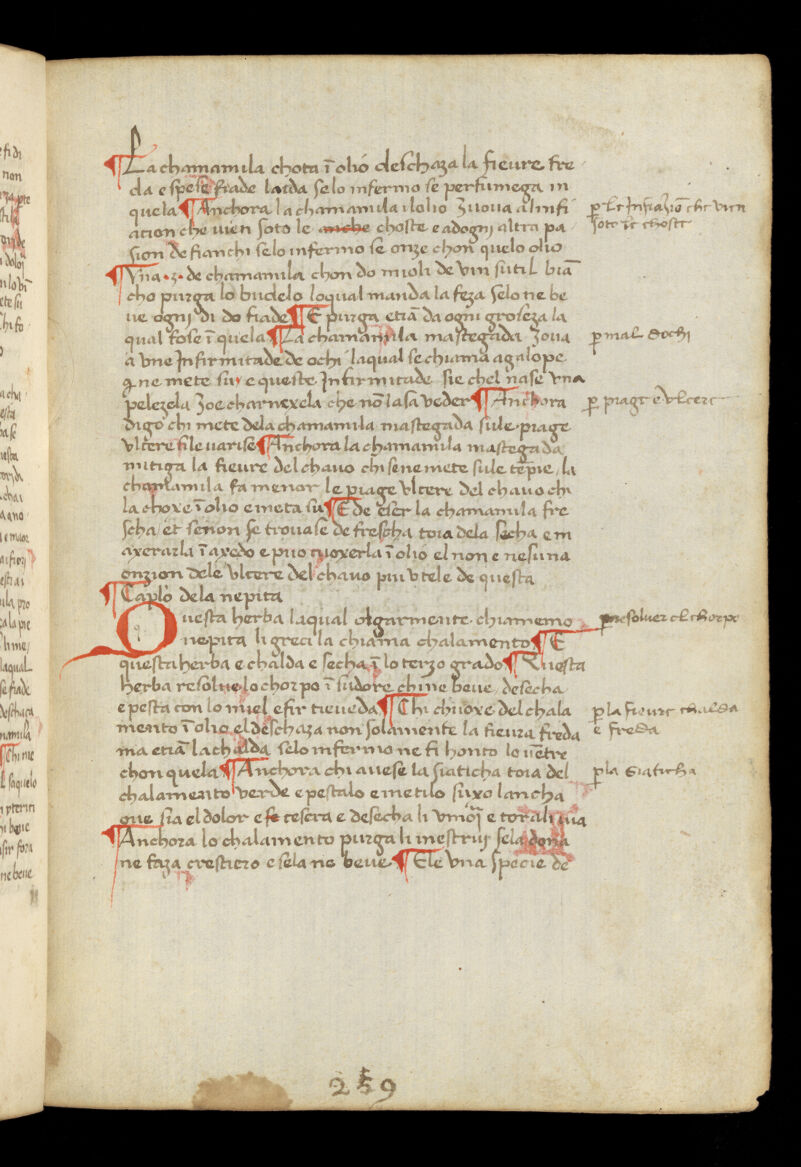 ¶ La chamamila chota ī olio deschaza la fieure fre
da e spese fiade laida se lo infermo se perfumega in
quela ¶ Anchora la chamamila ilolio zuoua a linfi
acion che vien soto le anche choste e adogni altra pa
sion de fianchi se lo infermo se onze chon quelo olio
¶ Vna .3. de chamamila chon do muoli de vin sutil biā
cho purga lo budelo loqual manda la feza se lo ne be
ue ogni di do fiade ¶ E purga etiā da ogni groseza la
qual fose ī quela ¶ La chamamila mastegada zoua
a vne Infirmitade de ochi laqual se chiama agalope
q̄ ne mete su e queste Infirmitade sie chel nase vna
pelezela zoe charnexela che nō lasa veder ¶ Anchora
digo chi mete dela chamamila mastegada sule piage
vlcere si le varise ¶ Anchora la chamamila mastegada
mitiga la fieure del chauo chi sene mete sule tēpie la
chamamila fa menor le piage vlcere del chauo chi
la choxe ī olio e meta su ¶ E de eser la chamamila fre
scha et se non se trouase de frescha toia dela secha e m
axerarla ī axedo e puo cuoxerla ī olio el non e nesuna
onzion dele vlcere del chauo piu vtele de questa
¶ Caplō dela nepita
Questa herba laqual olgarmente chiamemo
nepita li greci la chiama chalamento ¶ E
questa herba e chalda e secha ī lo terzo grado ¶ Questa
herba resolue lo chorpo ī sudore chi ne beue desecha
e pesta con lo miel e fir tieueda ¶ Chi chuoxe del chala
mento ī olio el deschaza non solamente la fieura freda
ma etiā la chalda se lo infermo ne fi honto lo vētre
chon quela ¶ Anchora chi auese la siaticha toia del
chalamento verde e pestalo e metilo suxo lancha
oue sia el dolor e fe cesera e desecha li vmori e torali
¶ Anchora lo chalamento purga li mestrui se la dona
ne faza crestiero e sela ne beue ¶ El e vna specie de
p̄ le Infiazio che vien
sote le choste
p̄ mal dochi
p̄ piage e vlcere
p̄ resoluer el chorpo
p̄ la fieure chalda
e freda
p̄ la siaticha
259